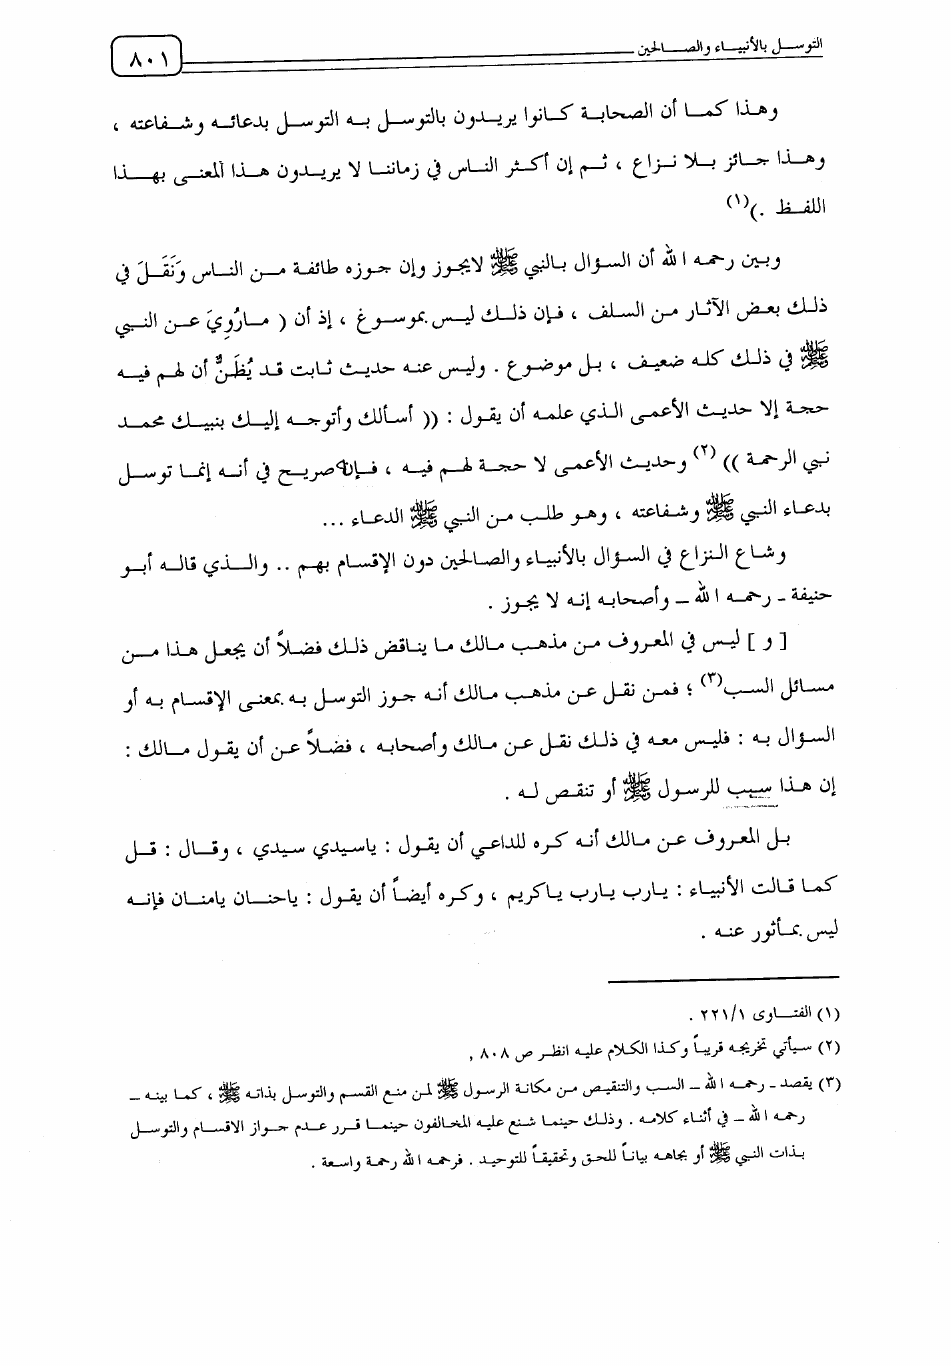 التوسل بالأنبياء والصالحين
٨٠١
وهذا كما أن الصحابة كانوا يريدون بالتوسل به التوسل بدعائه وشفاعته ،
وهذا جائز بلا نزاع ، ثم إن أكثر الناس في زماننا لا يريدون هذا المعنى بهذا
اللفظ .)(١)
وبين رحمه الله أن السؤال بالنبي ﷺ لايجوز وإن جوزه طائفة من الناس وَنَقَلَ في
ذلك بعض الآثار من السلف ، فإن ذلك ليس بموسوغ ، إذ أن ( مارُوِيَ عن النبي
ﷺ في ذلك كله ضعيف ، بل موضوع . وليس عنه حديث ثابت قد يُظَنُّ أن لهم فيه
حجة إلا حديث الأعمى الذي علمه أن يقول : (( أسألك وأتوجه إليك بنبيك محمد
نبي الرحمة )) (٢) وحديث الأعمى لا حجة لهم فيه ، فإنه صريح في أنه إنما توسل
بدعاء النبي ﷺ وشفاعته ، وهو طلب من النبي ﷺ الدعاء ...
وشاع النزاع في السؤال بالأنبياء والصالحين دون الإقسام بهم .. والذي قاله أبو
حنيفة - رحمه الله - وأصحابه إنه لا يجوز .
[ و ] ليس في المعروف من مذهب مالك ما يناقض ذلك فضلاً أن يجعل هذا من
مسائل السب(٣) ؛ فمن نقل عن مذهب مالك أنه جوز التوسل به بمعنى الإقسام به أو
السؤال به : فليس معه في ذلك نقل عن مالك وأصحابه ، فضلاً عن أن يقول مالك :
إن هذا سبب للرسول ﷺ أو تنقص له .
بل المعروف عن مالك أنه كره للداعي أن يقول : ياسيدي سيدي ، وقال : قل
كما قالت الأنبياء : يارب يارب ياكريم ، وكره أيضاً أن يقول : ياحنان يامنان فإنه
ليس بمأثور عنه .
(١) الفتاوى ٢٢١/١ .
(٢) سيأتي تخريجه قريباً وكذا الكلام عليه انظر ص ٨٠٨ ,
(٣) يقصد - رحمه الله - السب والتنقيص من مكانة الرسول ﷺ لمن منع القسم والتوسل بذاته ﷺ ، كما بينه -
رحمه الله - في أثناء كلامه . وذلك حينما شنع عليه المخالفون حينما قرر عدم جواز الاقسام والتوسل
بذات النبي ﷺ أو بجاهه بياناً للحق وتحقيقاً للتوحيد . فرحمه الله رحمة واسعة .